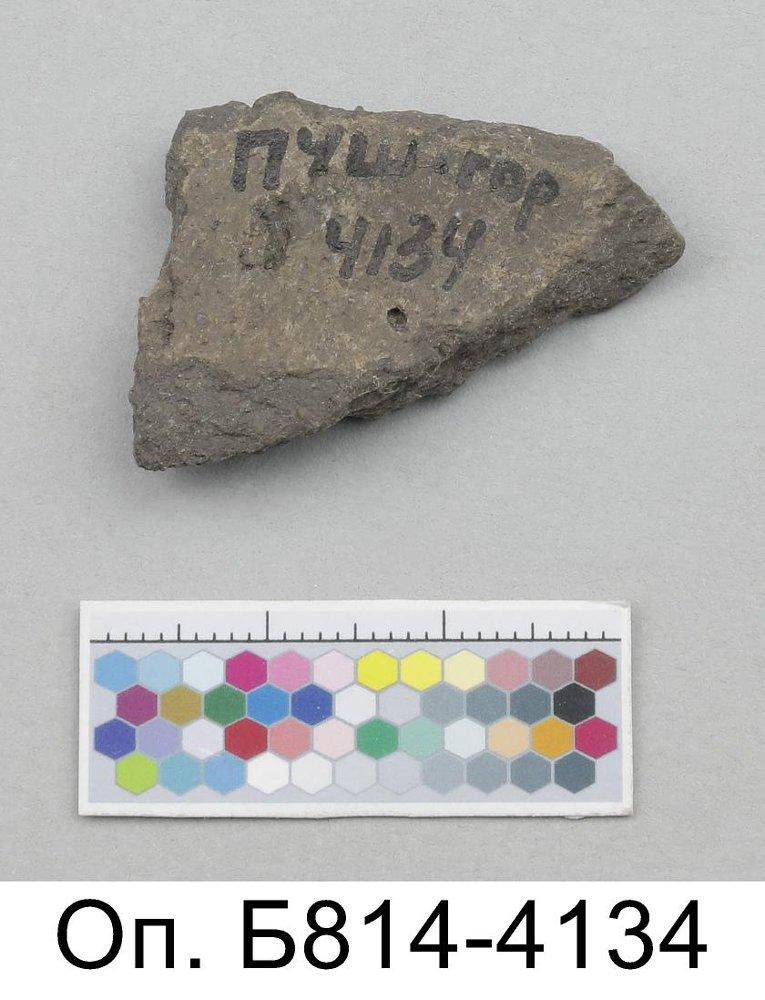 ПЧШ.гор
4134
Оп. Б814-4134